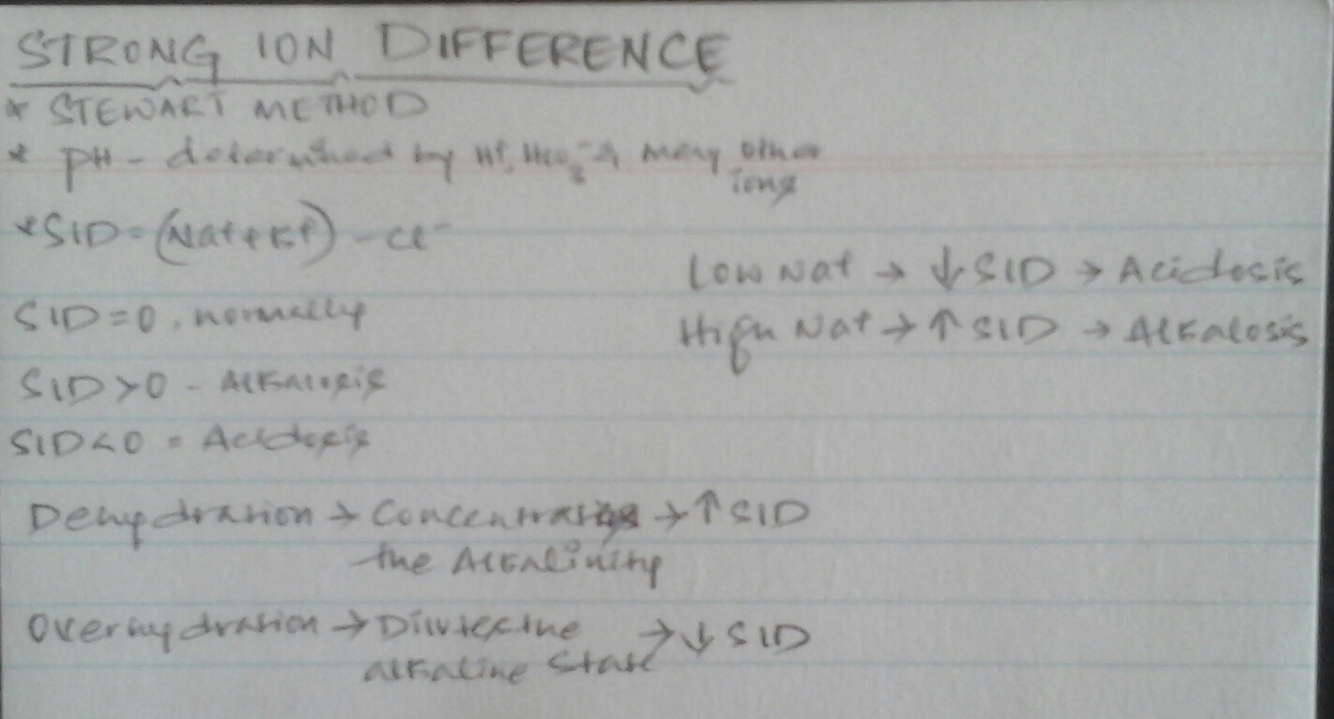 STRONG ION DIFFERENCE
* STEWART METHOD
* pH - determined by H+, HCO3- & many other
ions
* SID = (Na+ + K+) - Cl-
Low Na+ → ↓ SID → Acidosis
SID = 0, normally
High Na+ → ↑ SID → Alkalosis
SID > 0 - Alkalosis
SID < 0 = Acidosis
Dehydration → Concentrates → ↑ SID
the Alkalinity
Overhydration → Dilutes the → ↓ SID
alkaline State